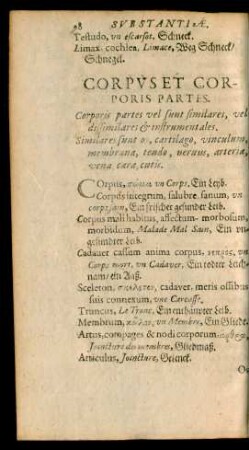 98 SVBSTANTIÆ.
Testudo, vn escargot. Schneck.
Limax. cochlea. Limace, Weg Schneck/
Schnegel.
CORPVS ET COR-
PORIS PARTES.
Corporis partes vel sunt similares, vel
dissimilares & instrumentales.
Similares sunt os, cartilago, vinculum,
membrana, tendo, neruus, arteria,
vena, caro, cutis.
COrpus, σῶμα, vn Corps. Ein Leib.
Corpus integrum, salubre, sanum, vn
corps sain, Ein frischer gesunder Leib.
Corpus mali habitus, affectum, morbosum,
morbidum, Malade Mal Sain, Ein vn
gesunder Leib.
Cadauer cassum anima corpus, νεκρὸς, vn
Corps mort, vn Cadauer, Ein todter Leich-
nam/ ein Aaß.
Sceleton, σκελετὸν, cadauer, meris ossibus
suis connexum, vne Carcasse.
Truncus, Le Tronc, Ein enthaupter Leib.
Membrum, κῶλον, vn Membre, Ein Gliede.
Artus, compages & nodi corporum,
Joincture du membres, Gliedmaß.
Articulus, Joincture, Geleict.